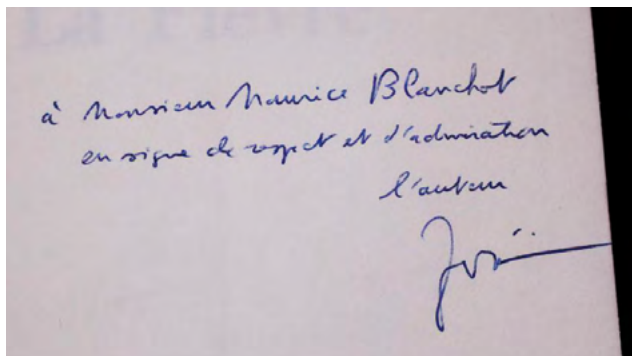 La Pierre
à Monsieur Maurice Blanchot
en signe de respect et d'admiration
l'auteur